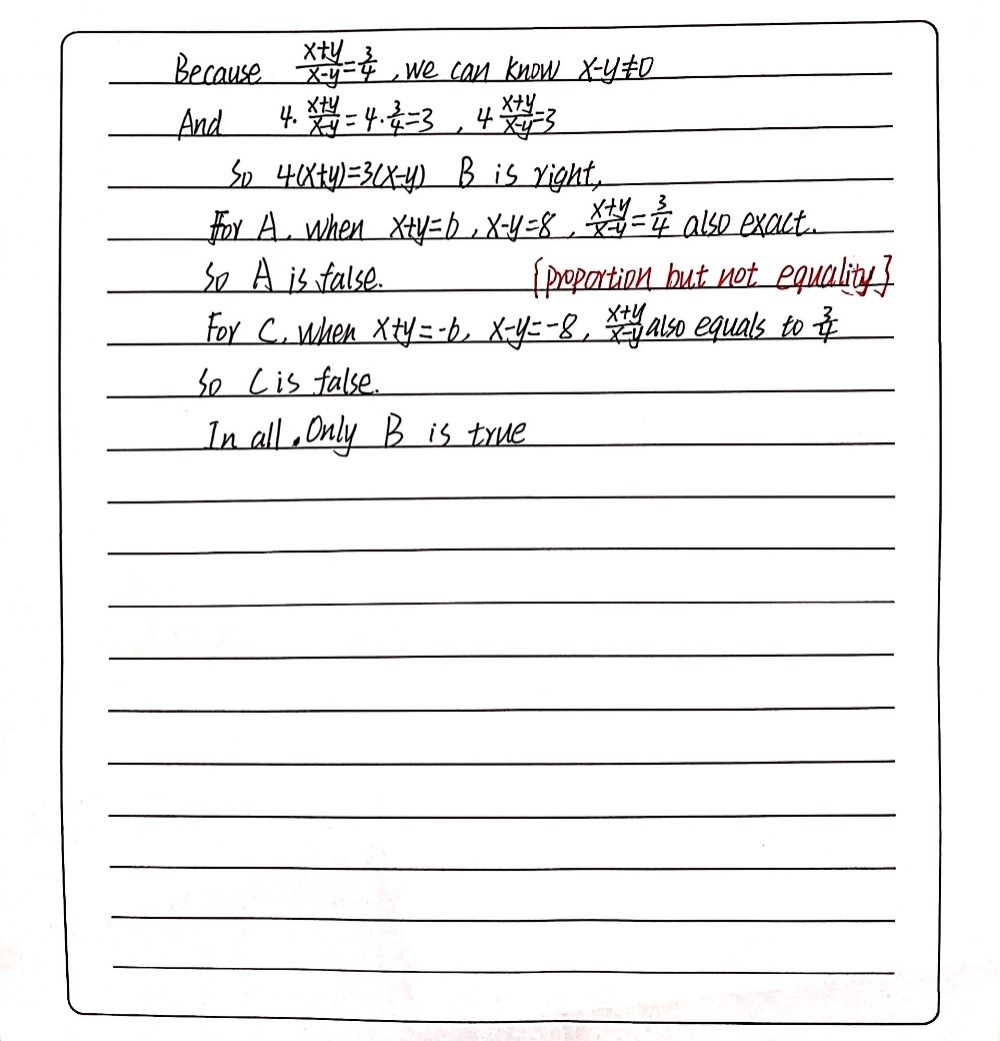 Because (x+y)/(x-y)=3/4, we can know x-y≠0
And 4·(x+y)/(x-y)=4·3/4=3, 4(x+y)/(x-y)=3
So 4(x+y)=3(x-y) B is right,
For A, when x+y=6, x-y=8, (x+y)/(x-y)=3/4 also exact.
So A is false. {proportion but not equality}
For C, when x+y=-6, x-y=-8, (x+y)/(x-y) also equals to 3/4
So C is false.
In all. Only B is true